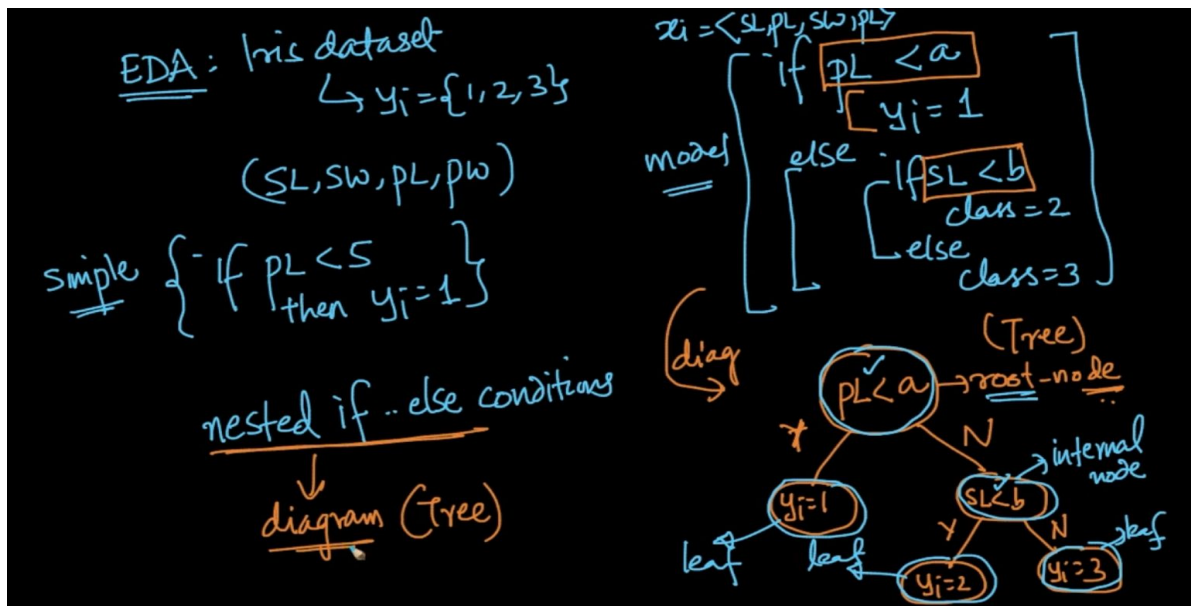 EDA: Iris dataset
↳ yi={1,2,3}
(SL, SW, PL, PW)
simple { if PL<5
then yi=1 }
nested if..else conditions
diagram (Tree)
xi=<SL,PL,SW,PL>
if PL <a
yi=1
model
else
if SL <b
class=2
else
class=3
diag
(Tree)
PL<a → root-node
Y N
internal
node
yi=1
SL<b
leaf
Y N
leaf
leaf
yi=2
yi=3